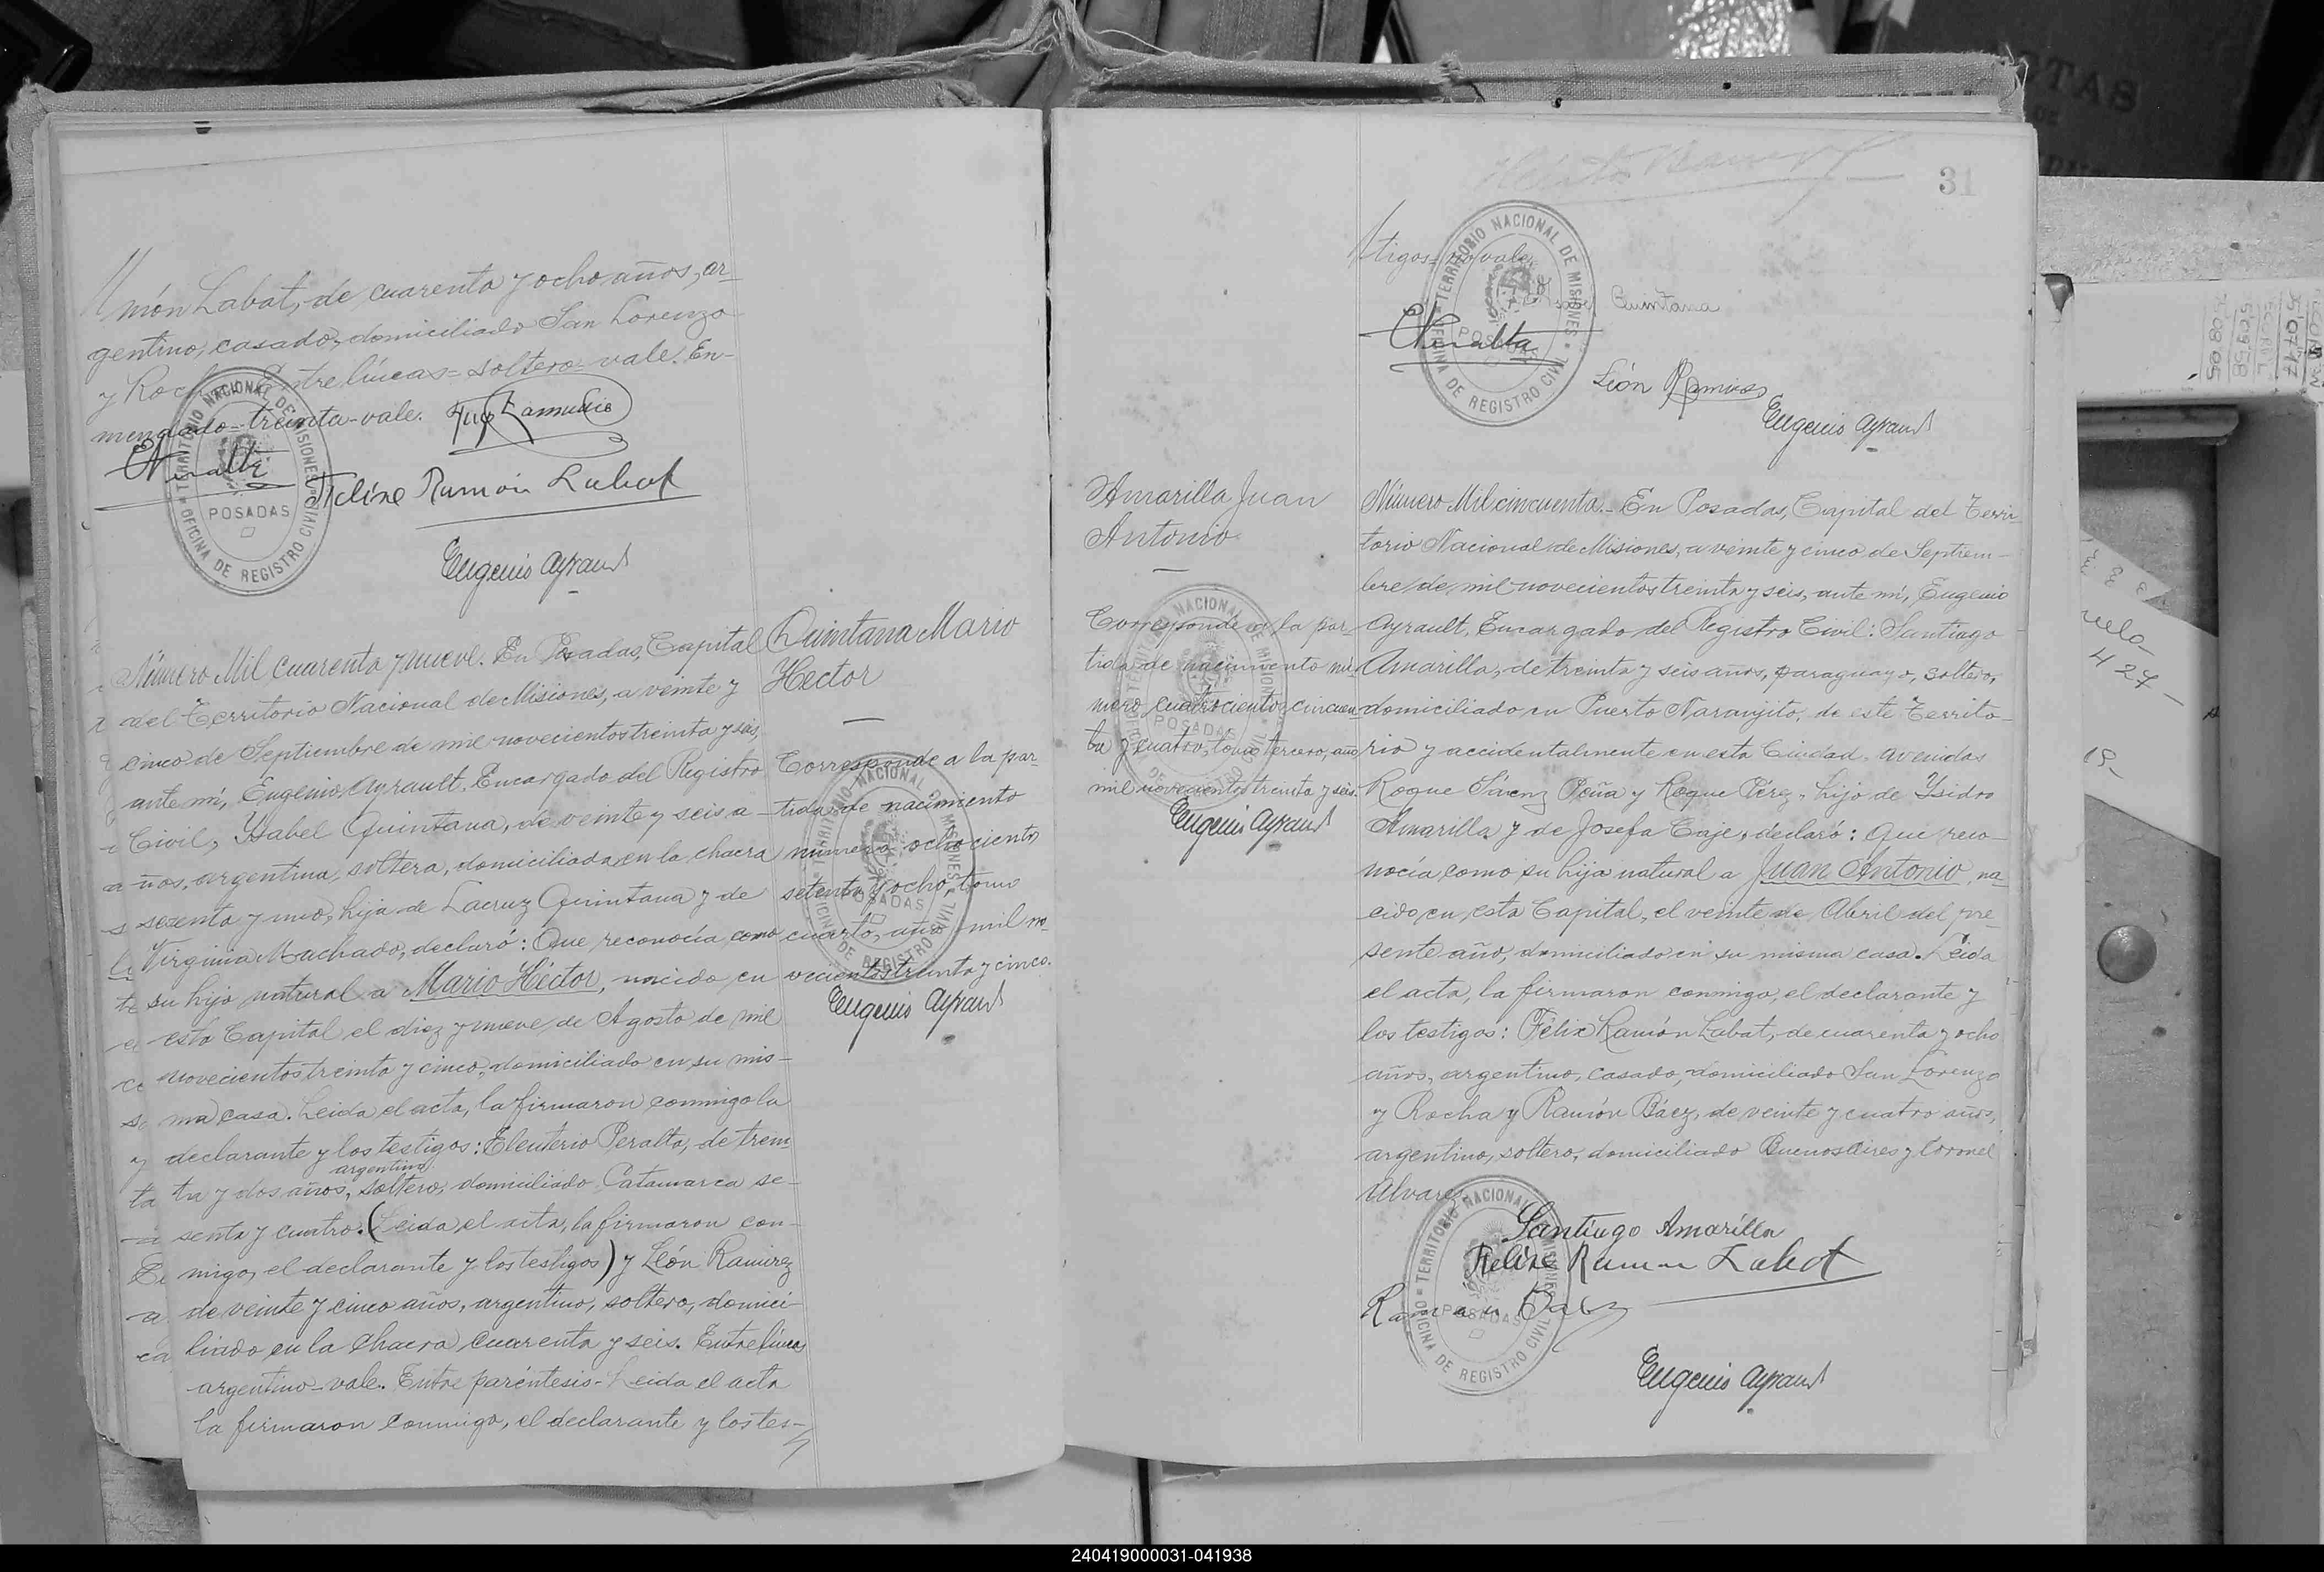 món Labat, de cuarenta y ocho años, ar-
gentino, casado, domiciliado San Lorenzo
y Rocha. Entre líneas= soltero= vale. En-
mendado-treinta-vale.
Felixe Ramón Labat
Eugenio Ayrault
TERRITORIO NACIONAL DE MISIONES
POSADAS
OFICINA DE REGISTRO CIVIL
Número Mil cuarenta y nueve. En Posadas, Capital
del Territorio Nacional de Misiones, a veinte y
cinco de Septiembre de mil novecientos treinta y seis,
ante mí, Eugenio Ayrault, Encargado del Registro
Civil, Ysabel Quintana, de veinte y seis a-
ños, argentina, soltera, domiciliada en la chacra
sezenta y uno, hija de Lacruz Quintana y de
Virginia Machado, declaró: Que reconocía como
su hijo natural a Mario Héctor, nacido en
esta Capital el diez y nueve de Agosto de mil
novecientos treinta y cinco, domiciliado en su mis-
ma casa. Leida el acta, la firmaron conmigo la
declarante y los testigos: Eleuterio Peralta, de trein
argentino
ta y dos años, soltero, domiciliado Catamarca se-
senta y cuatro. (Leida el acta, la firmaron con-
migo, el declarante y los testigos) y León Ramirez
de veinte y cinco años, argentino, soltero, domici-
liado en la Chacra cuarenta y seis. Entre lineas
argentino-vale. Entre paréntesis-Leida el acta
la firmaron conmigo, el declarante y los tes-
Quintana Mario
Hector
Corresponde a la par-
tida de nacimiento
número ochocientos
setenta y ocho, tomo
cuarto, año mil no-
vecientos treinta y cinco.
Eugenio Ayrault
TERRITORIO NACIONAL DE MISIONES
POSADAS
OFICINA DE REGISTRO CIVIL
31
tigos= no vale.
TERRITORIO NACIONAL DE MISIONES
POSADAS
OFICINA DE REGISTRO CIVIL
Ysabel Quintana
EPeralta
León Ramires
Eugenio Ayrault
Amarilla Juan
Antonio
Corresponde a la par-
tida de nacimiento nú-
mero cuatrocientos cincuen-
ta y cuatro, tomo tercero, año
mil novecientos treinta y seis.
Eugenio Ayrault
TERRITORIO NACIONAL DE MISIONES
POSADAS
OFICINA DE REGISTRO CIVIL
Número Mil cincuenta.- En Posadas, Capital del Terri-
torio Nacional de Misiones, a veinte y cinco de Septiem-
bre de mil novecientos treinta y seis, ante mí, Eugenio
Ayrault, Encargado del Registro Civil: Santiago
Amarilla, de treinta y seis años, paraguayo, soltero,
domiciliado en Puerto Naranjito, de este Territo-
rio y accidentalmente en esta Ciudad, avenidas
Roque Sáenz Peña y Roque Pérez, hijo de Ysidro
Amarilla y de Josefa Caje, declaró: Que reco-
nocía como su hija natural a Juan Antonio, na-
cido en esta Capital, el veinte de Abril del pre-
sente año, domiciliado en su misma casa. Leida
el acta, la firmaron conmigo, el declarante y
los testigos: Félix Ramón Labat, de cuarenta y ocho
años, argentino, casado, domiciliado San Lorenzo
y Rocha y Ramón Báez, de veinte y cuatro años,
argentino, soltero, domiciliado Buenos Aires y Coronel
Alvarez.
Santiugo Amarilla
Felixe Ramon Labat
Ramon Baez
Eugenio Ayrault
TERRITORIO NACIONAL DE MISIONES
POSADAS
OFICINA DE REGISTRO CIVIL
427
240419000031-041938